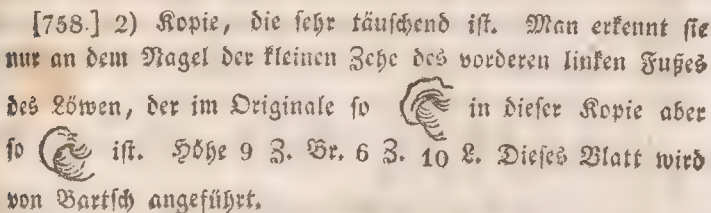 [758.] 2) Kopie, die sehr täuschend ist. Man erkennt sie
nur an dem Nagel der kleinen Zehe des vorderen linken Fußes
des Löwen, der im Originale so in dieser Kopie aber
so ist. Höhe 9 Z. Br. 6 Z. 10 L. Dieses Blatt wird
von Bartsch angeführt.